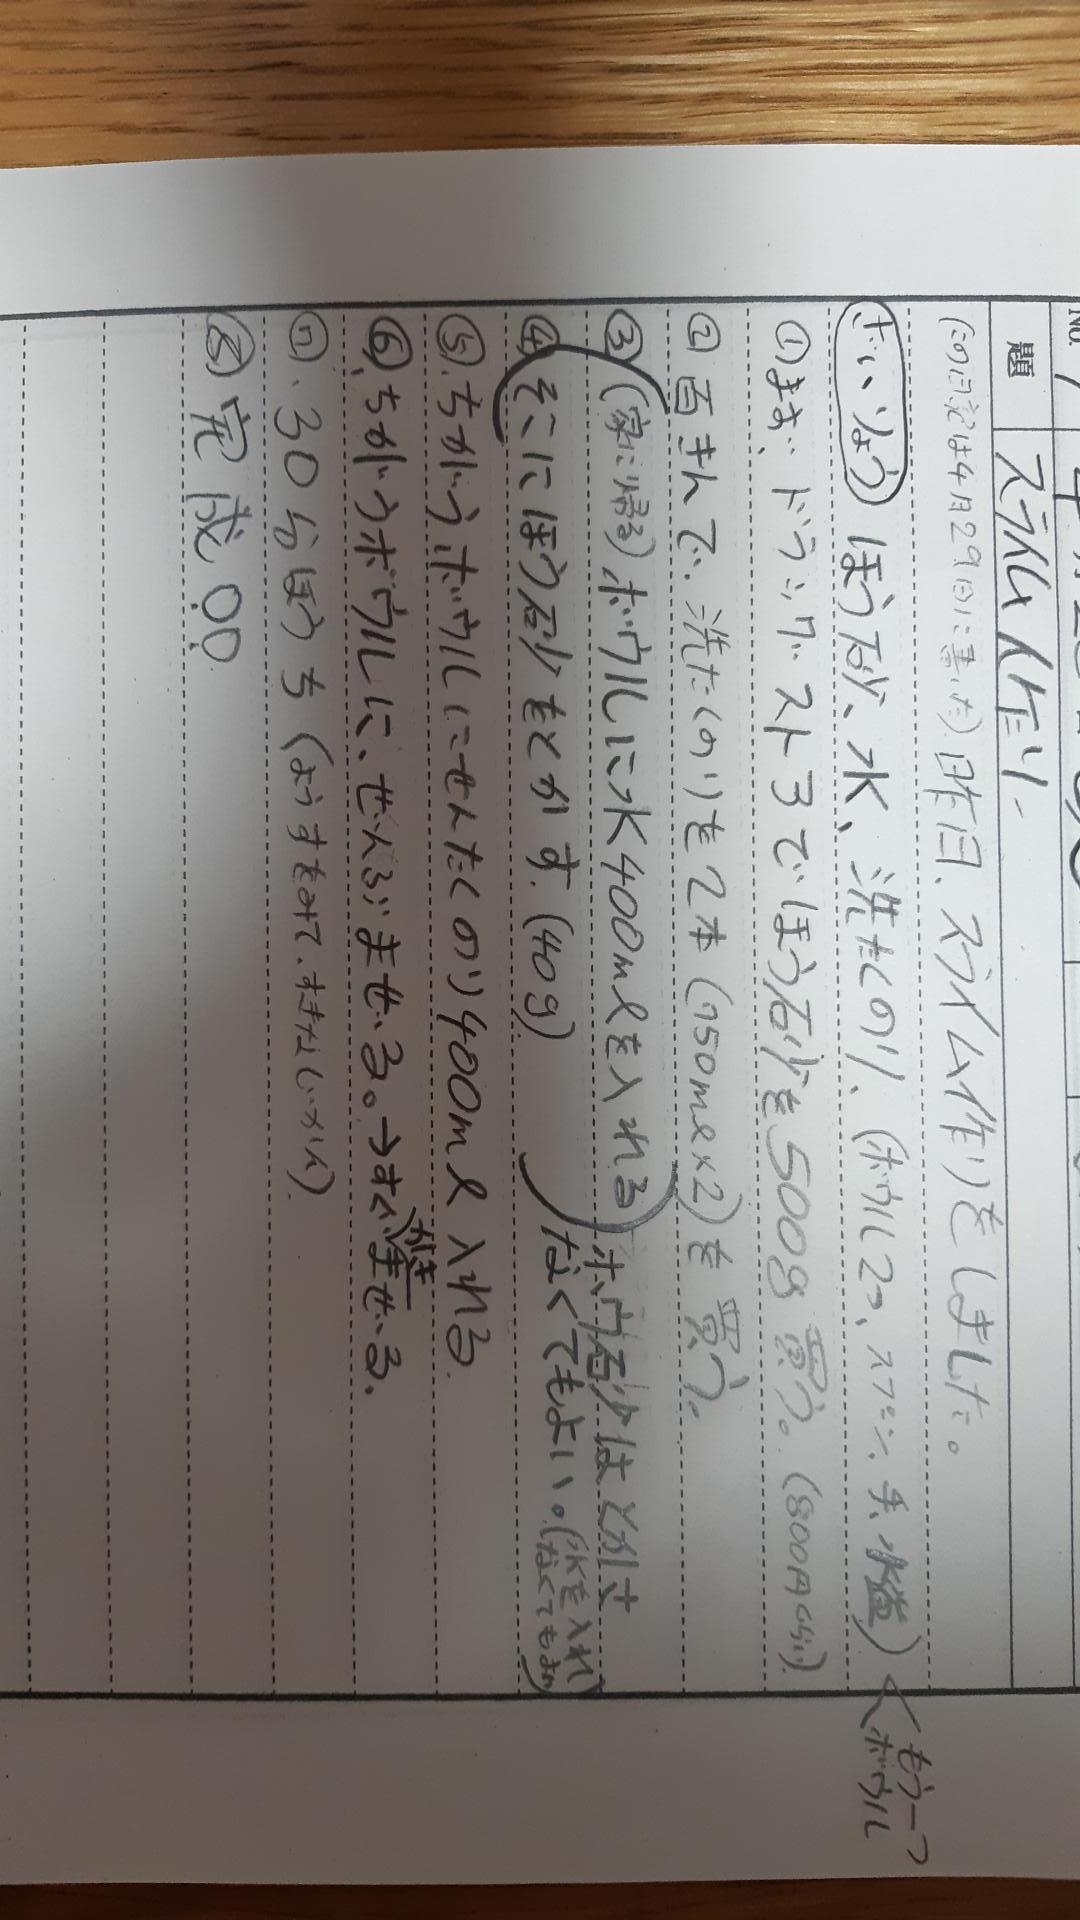 No. 1
題 スライム作り
(この日記は4月29日に書いた)昨日、スライム作りをしました。
ざいりょう ほう砂、水、洗たくのり、(ボウル2つ、スプーン、手、水)
<もう一つ
ボウル
①まず、ドラッグストアでほう砂を500g買う。(800円くらい)
②百きんで、洗たくのりを2本(750ml×2)を買う。
③(家に帰る)ボウルに水400mlを入れる
④そこにほう砂をとかす.(40g)
ホウ砂はとかさ
なくてもよい。(水を入れ
なくてもよい)
⑤.ちがうボウルにせんたくのり400ml入れる.
⑥.ちがうボウルに、ぜんぶまぜる。→すぐかきまぜる.
⑦.30分ほうち(ようすをみて、すきなじかん)
⑧完成.○○